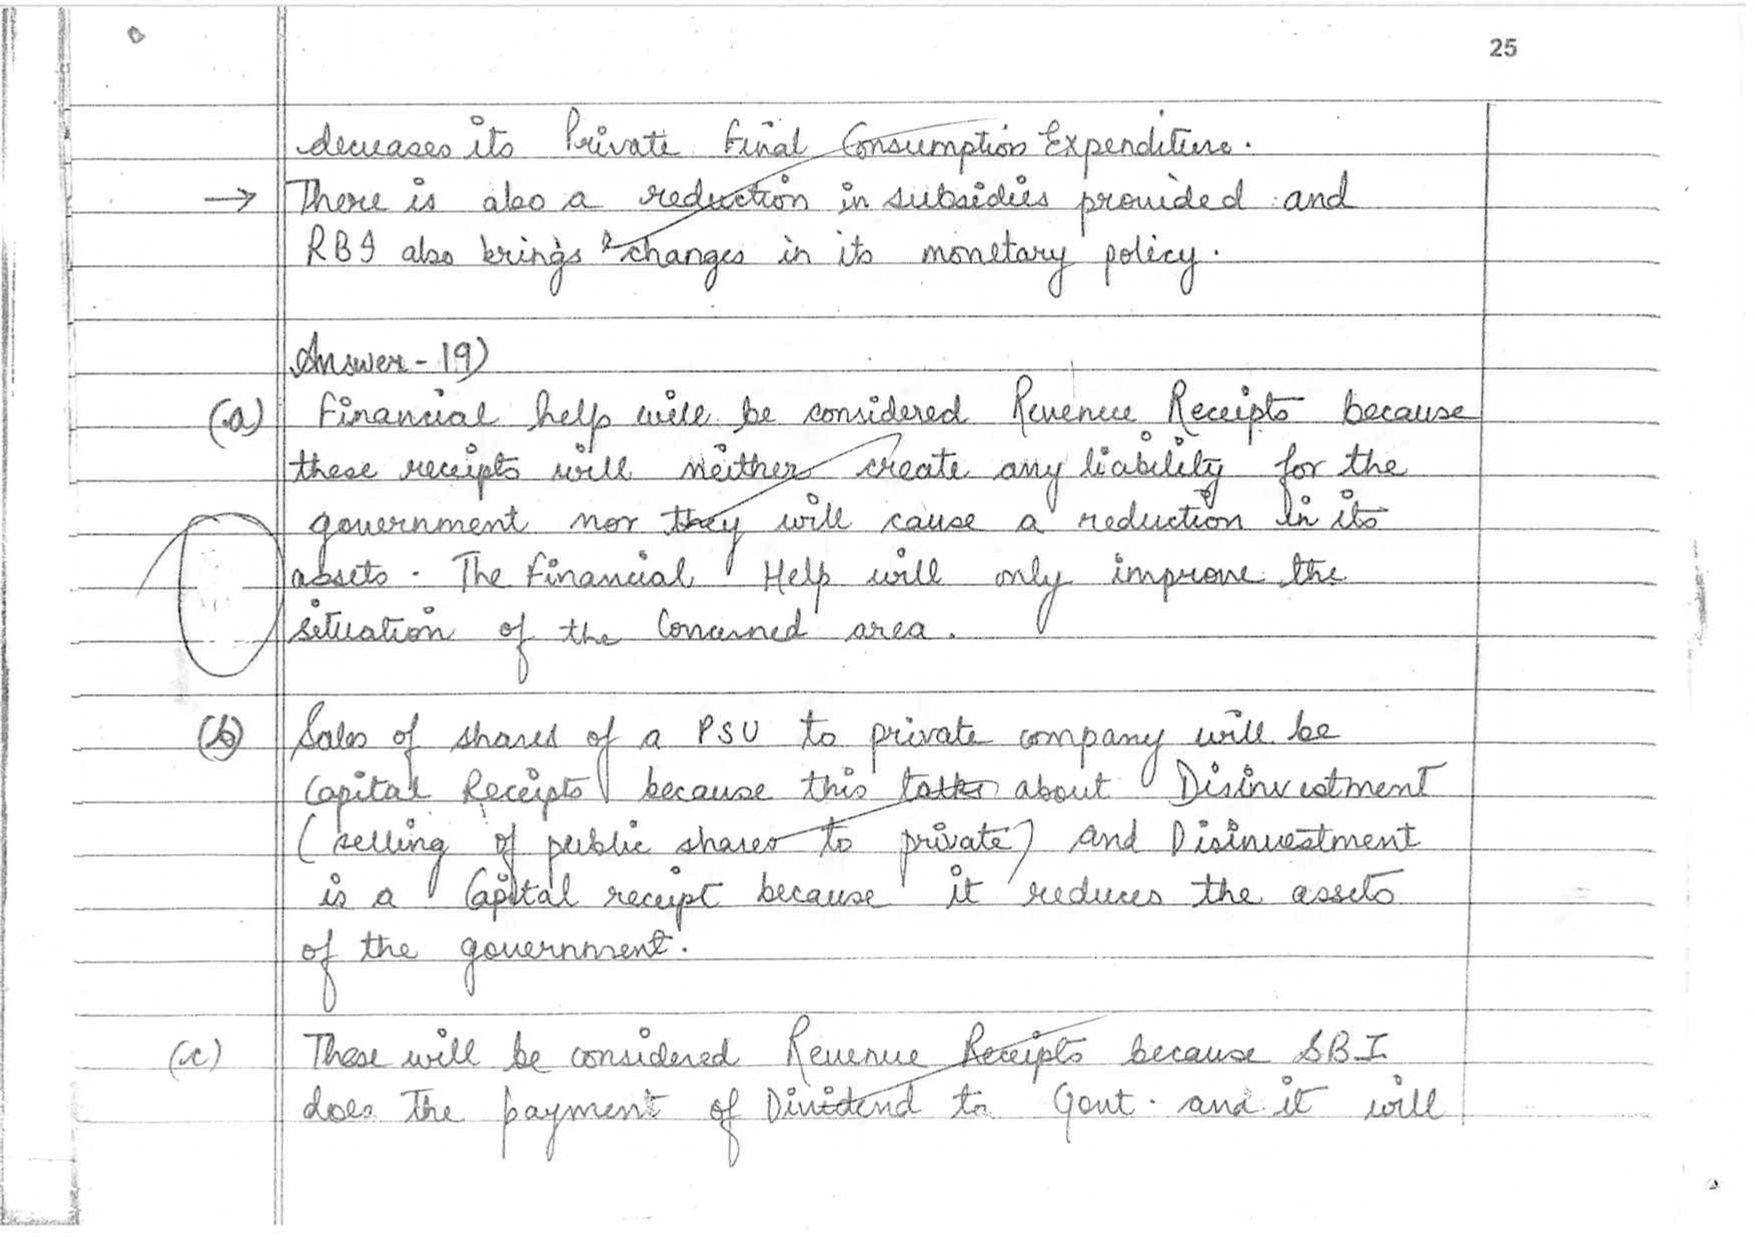 25
decreases its Private Final Consumption Expenditure.
→ There is also a reduction in subsidies provided and
RBI also brings changes in its monetary policy.
Answer - 19)
(a) Financial help will be considered Revenue Receipts because
these receipts will neither create any liability for the
government nor they will cause a reduction in its
assets. The Financial Help will only improve the
situation of the Concerned area.
(b) Sales of shares of a PSU to private company will be
Capital Receipts because this talks about Disinvestment
(selling of public shares to private) and Disinvestment
is a Capital receipt because it reduces the assets
of the government.
(c) These will be considered Revenue Receipts because SBI
does The payment of Dividend to Govt. and it will